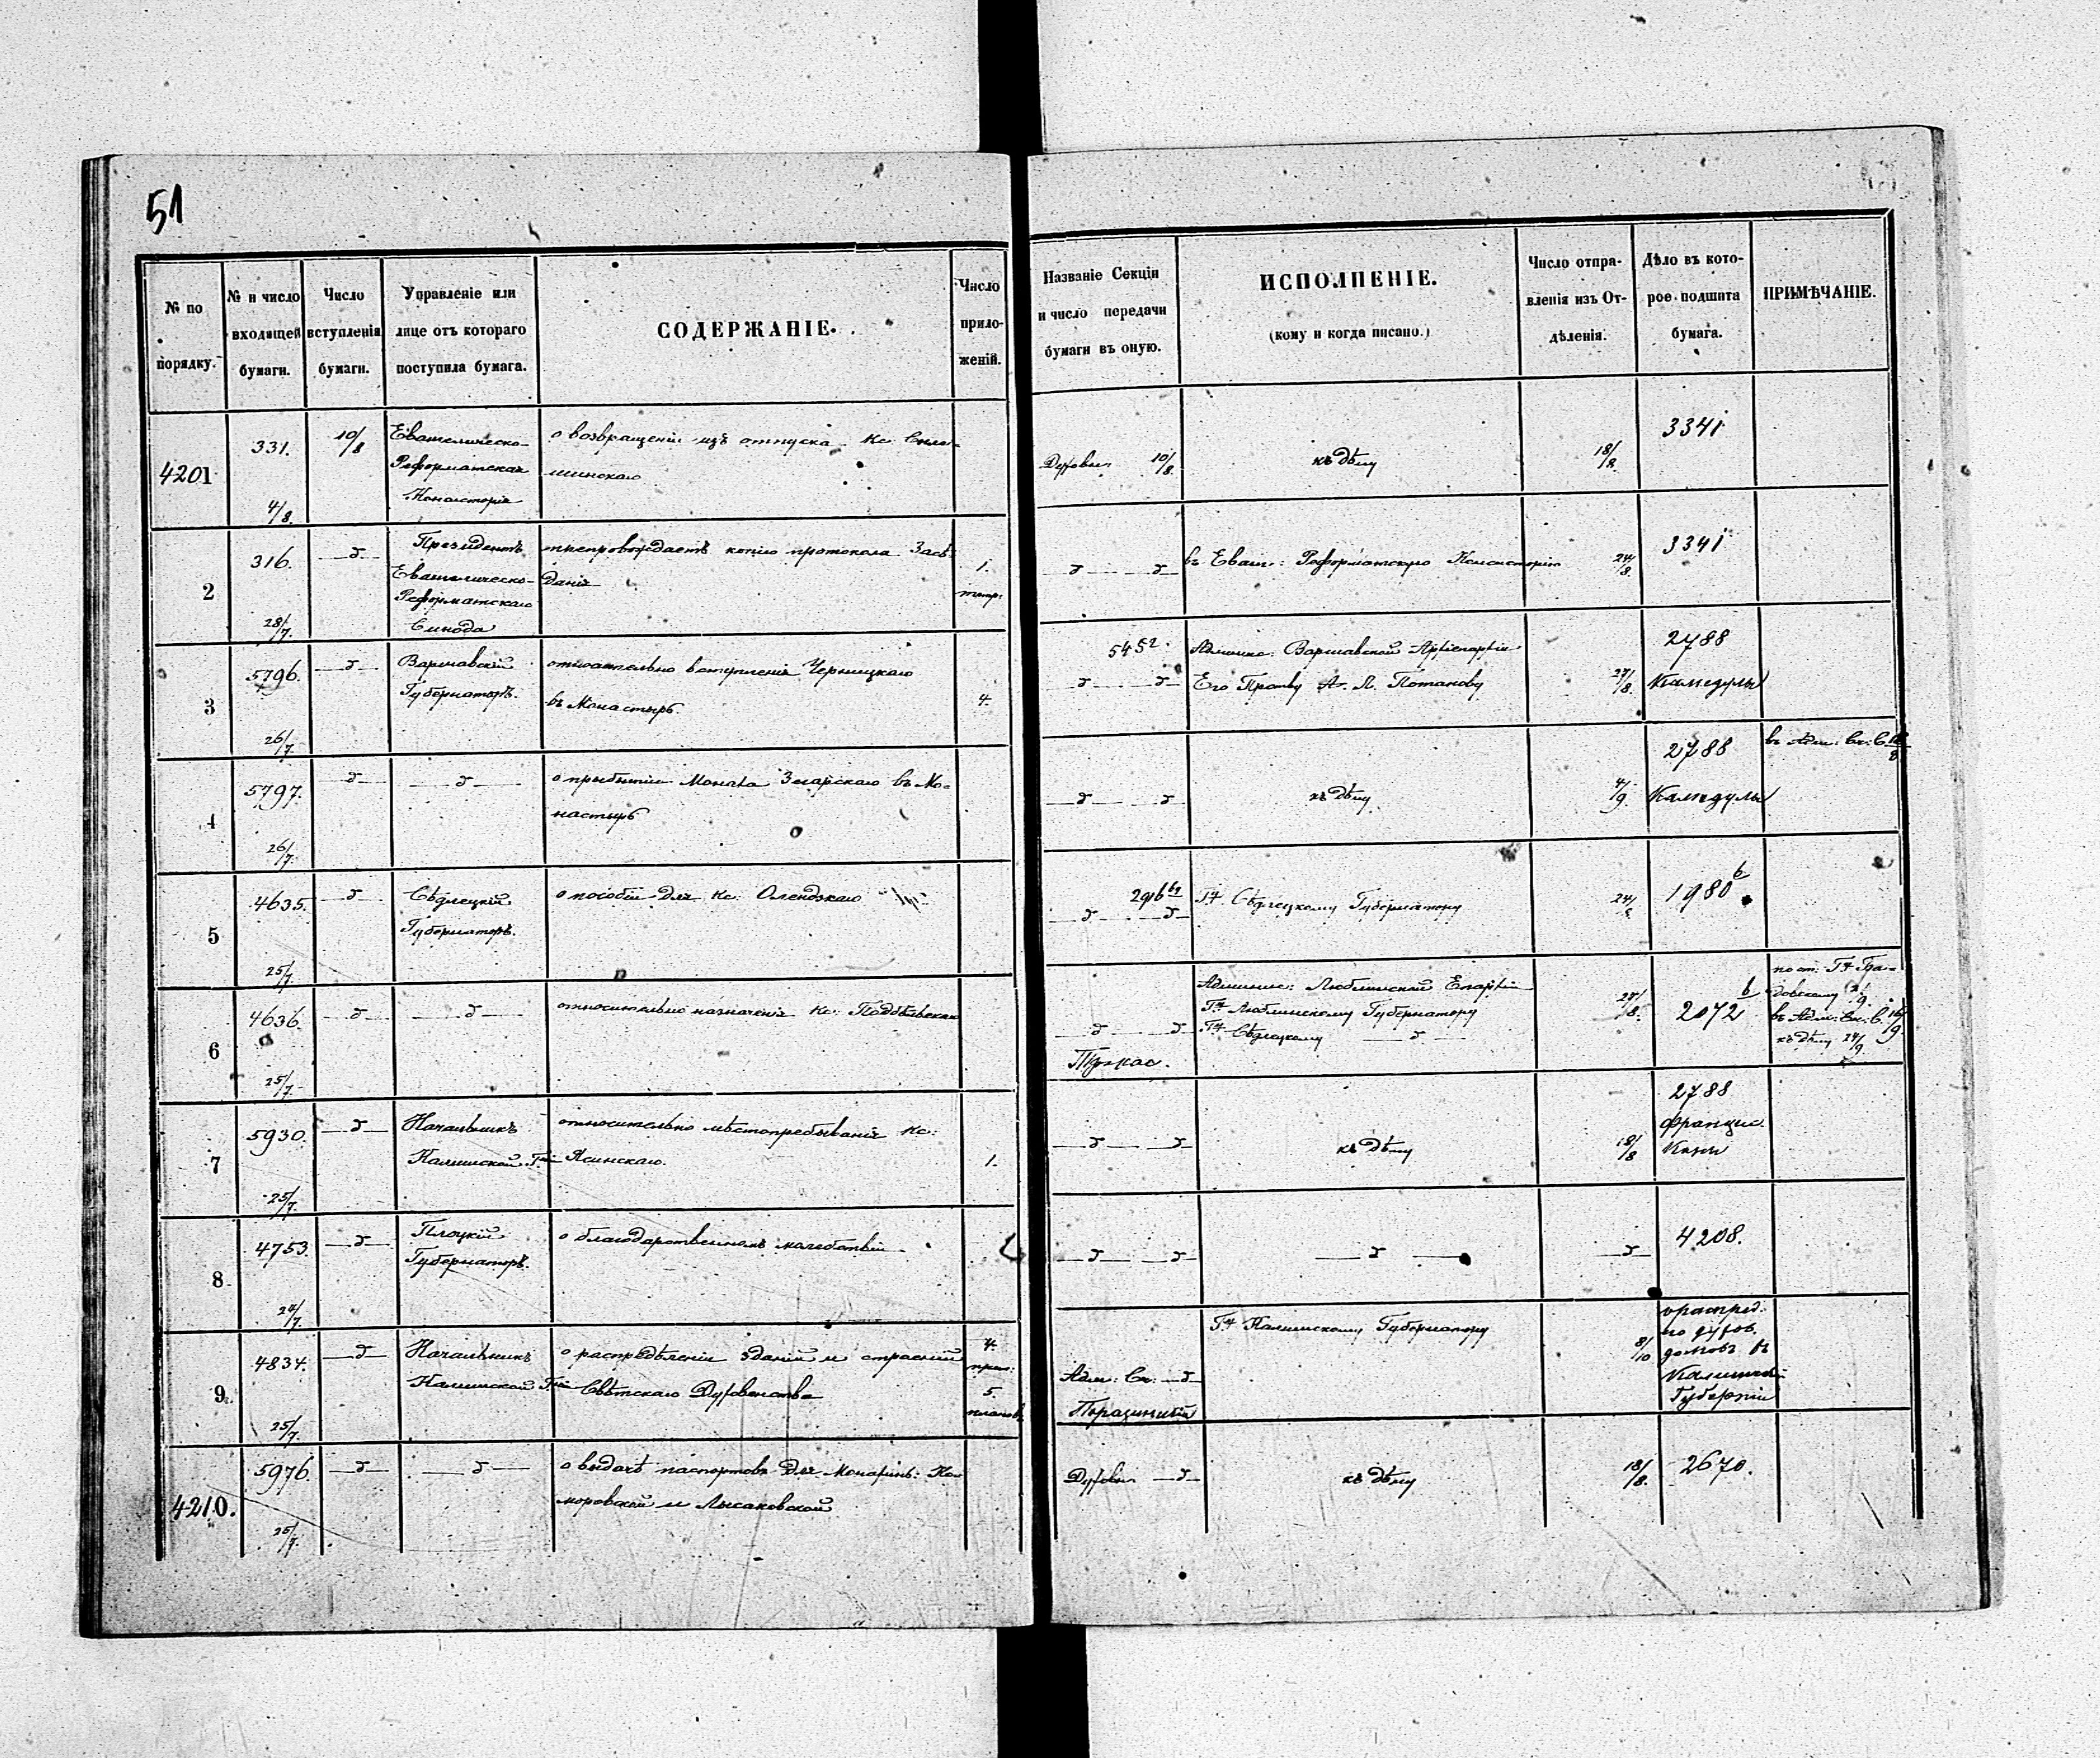 51
№ по порядку.
№ и число входящей бумаги.
Число вступленія бумаги.
Управленіе или лице отъ котораго поступила бумага.
СОДЕРЖАНІЕ.
Число приложеній.
Названіе Секціи и число передачи бумаги въ оную.
ИСПОЛНЕНІЕ.
(кому и когда писано.)
Число отправленія изъ Отдѣленія.
Дѣло въ которое подшита бумага.
ПРИМѢЧАНІЕ.
4201
331.
4/8.
10/8
Евангелическо-
Реформатская
Консисторія
о возвращеніи изъ отпуска Кс:
Духовн. 10/8.
къ дѣлу
18/8.
3341
2
316.
28/7.
Президентъ
Евангелическо-
Реформатскаго
Синода
препровождаетъ копію протокола Засѣ-
данія
1.
въ Еванг: Реформатскую Консисторію
24/8.
3341
3
5796.
26/7.
Варшавскій
Губернаторъ.
относительно вступленія Черницкаго
въ Монастырь.
4.
5452.
Админис. Варшавской Архіепархіи
Его Прову А. Л. Потапову
27/8.
2788
Камедулы
4
5797.
26/7.
о прибытіи Монаха Згарскаго въ Мо-
настырь
къ дѣлу
4/9.
2788
Камедулы
въ Адм: Ск: С.
5
4635.
25/7.
Сѣдлецкій
Губернаторъ.
о пособіи для Кс: Олендзкаго
2916
Гну Сѣдлецкому Губернатору
24/8
1980 b
6
4636.
25/7.
относительно назначенія Кс: Поддѣбскаго
Админис: Люблинской Епархіи
Гну Люблинскому Губернатору
Гну Сѣдлецкому
27/8.
2072 b
въ Адм: Ск: С. 16/9.
къ дѣлу 24/9.
7
5930.
25/7.
Начальникъ
Калишской Гніи
относительно мѣстопребыванія Кс:
Ясинскаго.
1.
къ дѣлу
18/8
2788
Францис
Каны
8
4753.
24/7.
Плоцкій
Губернаторъ.
о благодарственномъ молебствіи
4208.
9.
4834.
25/7.
Начальникъ
Калишской Гніи
о распредѣленіи зданій и строеній
Свѣтскаго Духовенства
4.
прил:
5
планов.
Адм: Ск:
Гну Калишскому Губернатору
8/10
о распред.
по духов.
домовъ въ
Калишской
Губерніи
4210.
5976.
25/7.
о выдачѣ паспортовъ для Монахинь: Ко-
моровской и Лысаковской
Духовн
къ дѣлу
18/8.
2670.